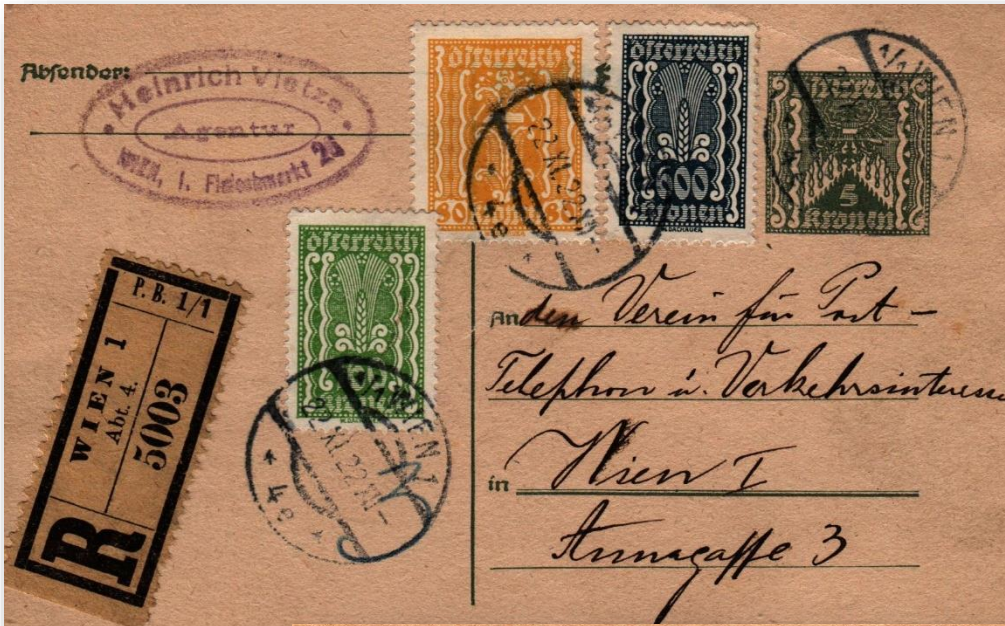 Absender:
Heinrich Vietze
Agentur
WIEN, I. Fleischmarkt
österreich
80 80
österreich
600
kronen
österreich
5
kronen
1/1 WIEN 1
22 XI 22 XI
österreich
WIEN 1
22 XI 22 XI
* 4a *
P. B. 1/1
WIEN 1
Abt. 4.
5003
R
An den Verein für Post-
Telephon u. Verkehrsinteresse
in Wien I
Annagasse 3